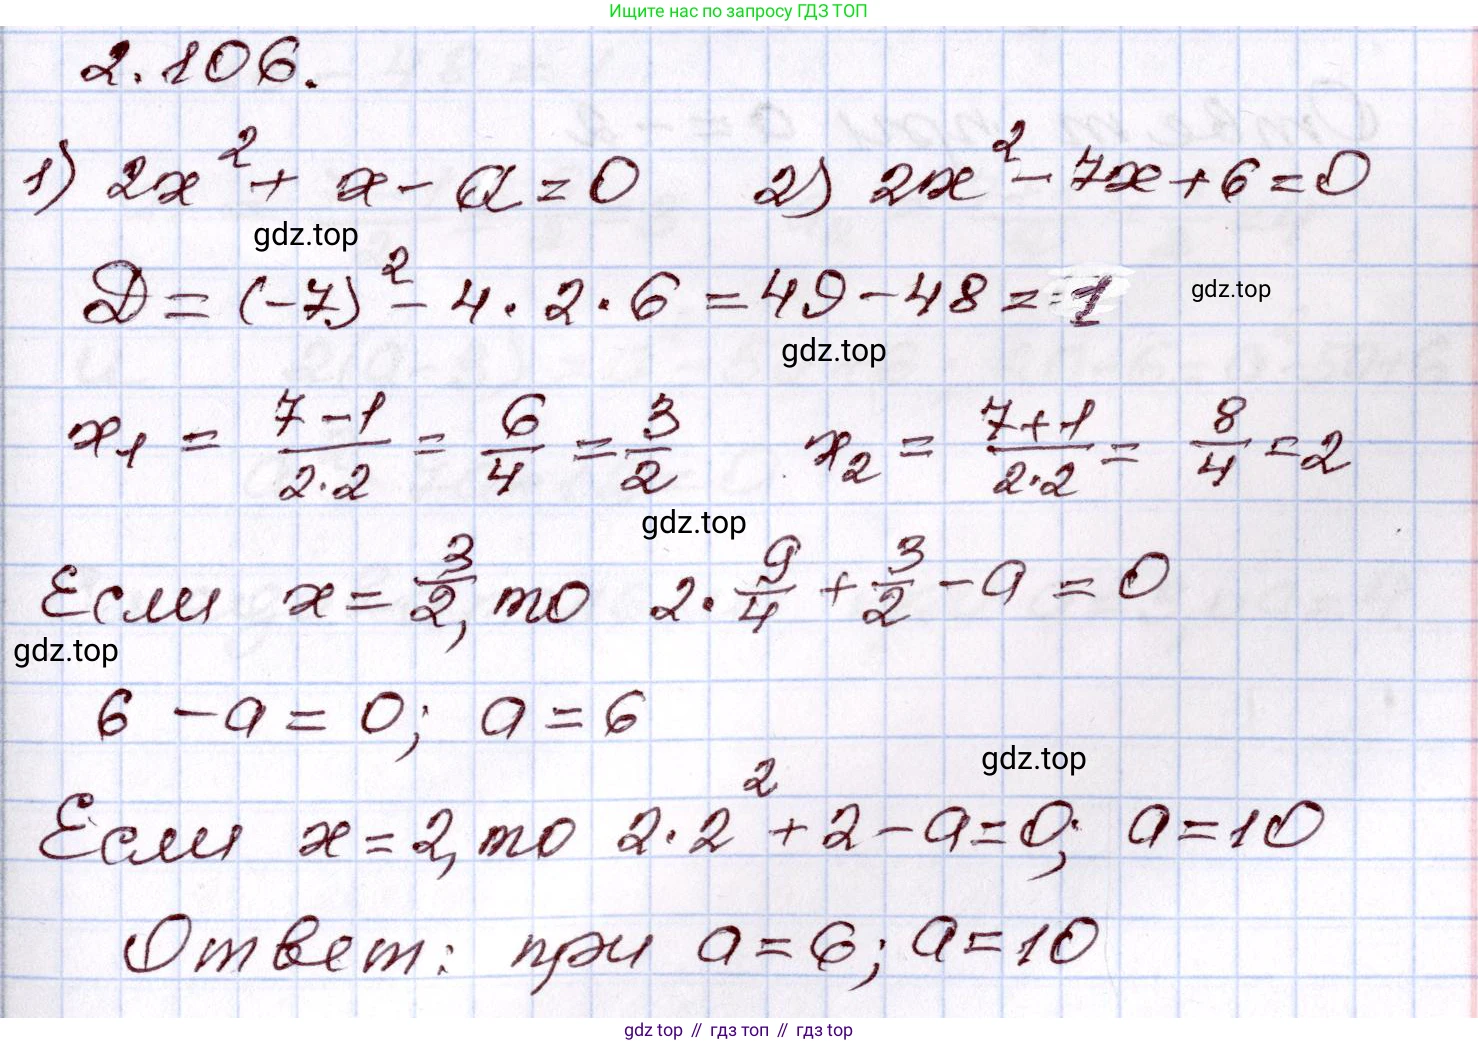 Ищите нас по запросу ГДЗ ТОП
2.106.
1) 2x² + x - a = 0 2) 2x² - 7x + 6 = 0
gdz.top
D = (-7)² - 4 · 2 · 6 = 49 - 48 = 1
gdz.top
gdz.top
x₁ = (7-1)/(2·2) = 6/4 = 3/2 x₂ = (7+1)/(2·2) = 8/4 = 2
gdz.top
Если x = 3/2, то 2 · 9/4 + 3/2 - a = 0
gdz.top
6 - a = 0; a = 6
gdz.top
Если x = 2, то 2 · 2² + 2 - a = 0; a = 10
Ответ: при a = 6; a = 10
gdz top // гдз топ // гдз top